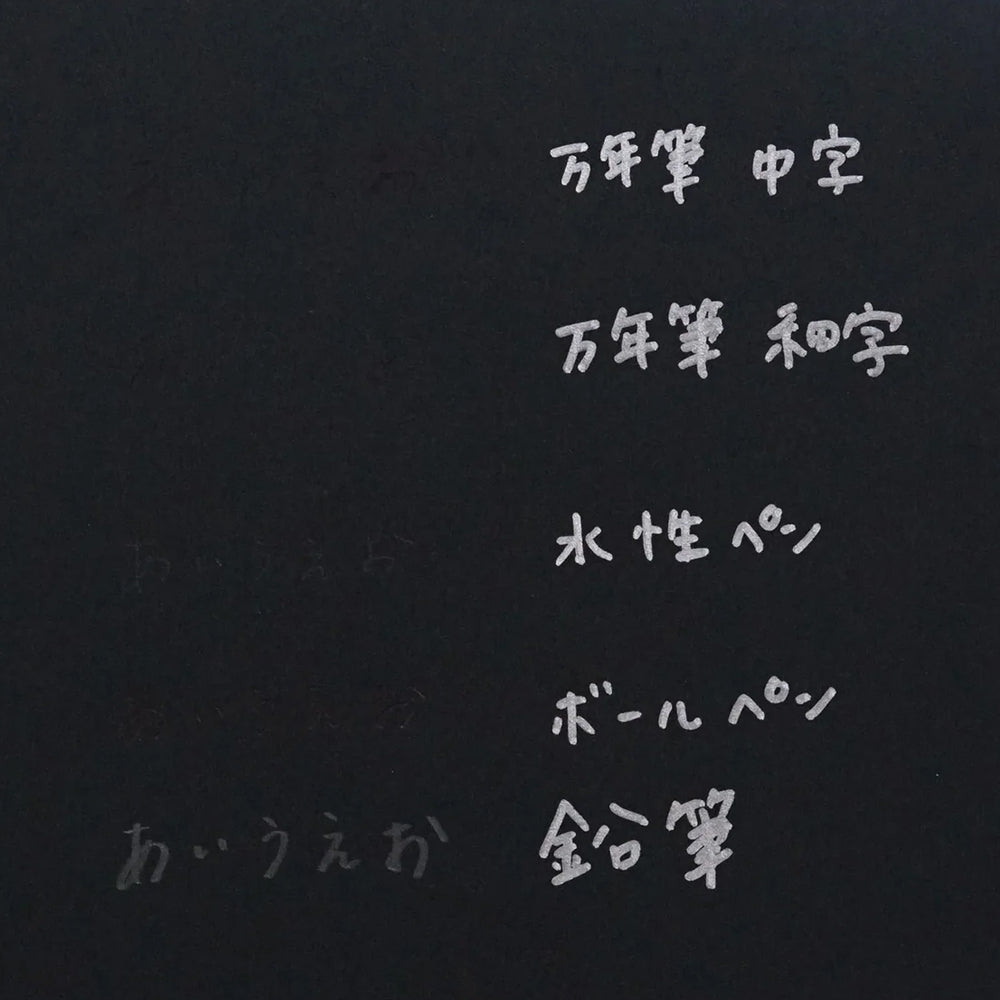 万年筆 中字
万年筆 細字
あいうえお 水性ペン
あいうえお ボールペン
あいうえお 鉛筆